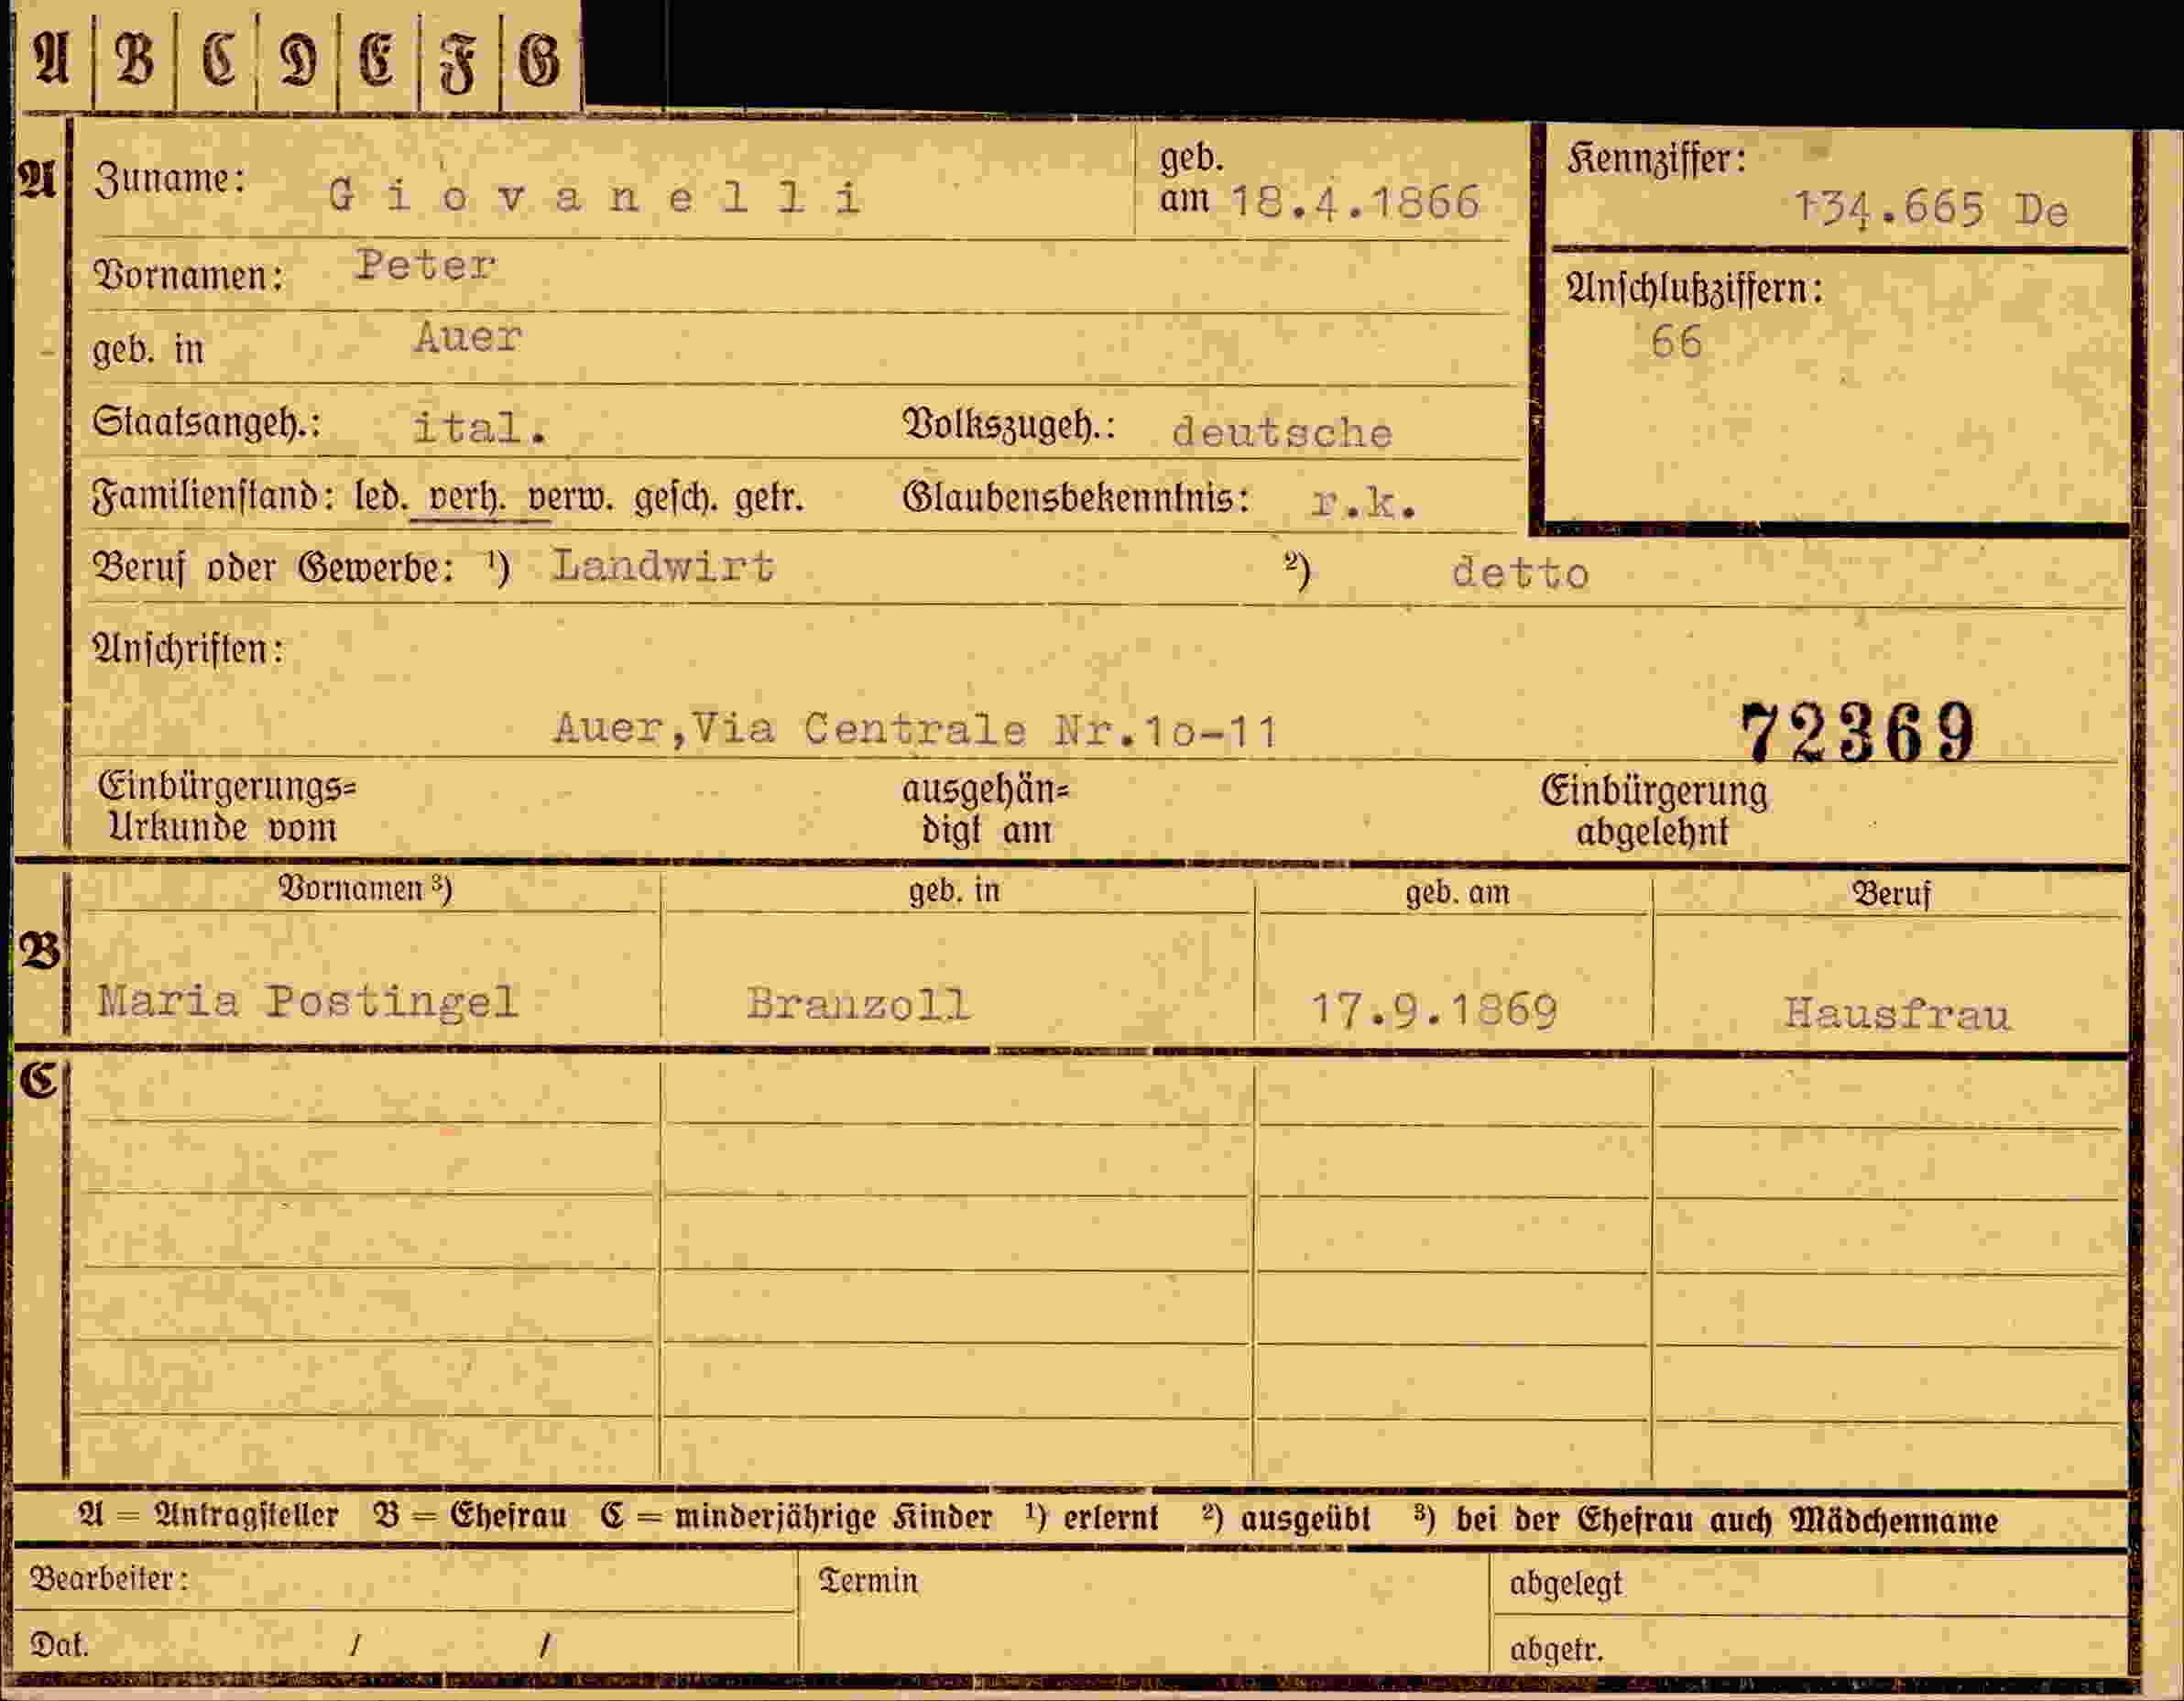 A B C D E F G
A Zuname: Giovanelli geb. am 18.4.1866 Kennziffer: 134.665 De
Vornamen: Peter
Anschlußziffern:
geb. in Auer 66
Staatsangeh.: ital. Volkszugeh.: deutsche
Familienstand: led. verh. verw. gesch. getr. Glaubensbekenntnis: r.k.
Beruf oder Gewerbe: ¹) Landwirt ²) detto
Anschriften:
Auer,Via Centrale Nr.1o-11 72369
Einbürgerungs= ausgehän= Einbürgerung
Urkunde vom digt am abgelehnt
Vornamen ³) geb. in geb. am Beruf
B
Maria Postingel Branzoll 17.9.1869 Hausfrau
C
A = Antragsteller B = Ehefrau C = minderjährige Kinder ¹) erlernt ²) ausgeübt ³) bei der Ehefrau auch Mädchenname
Bearbeiter: Termin abgelegt
Dat. / / abgetr.